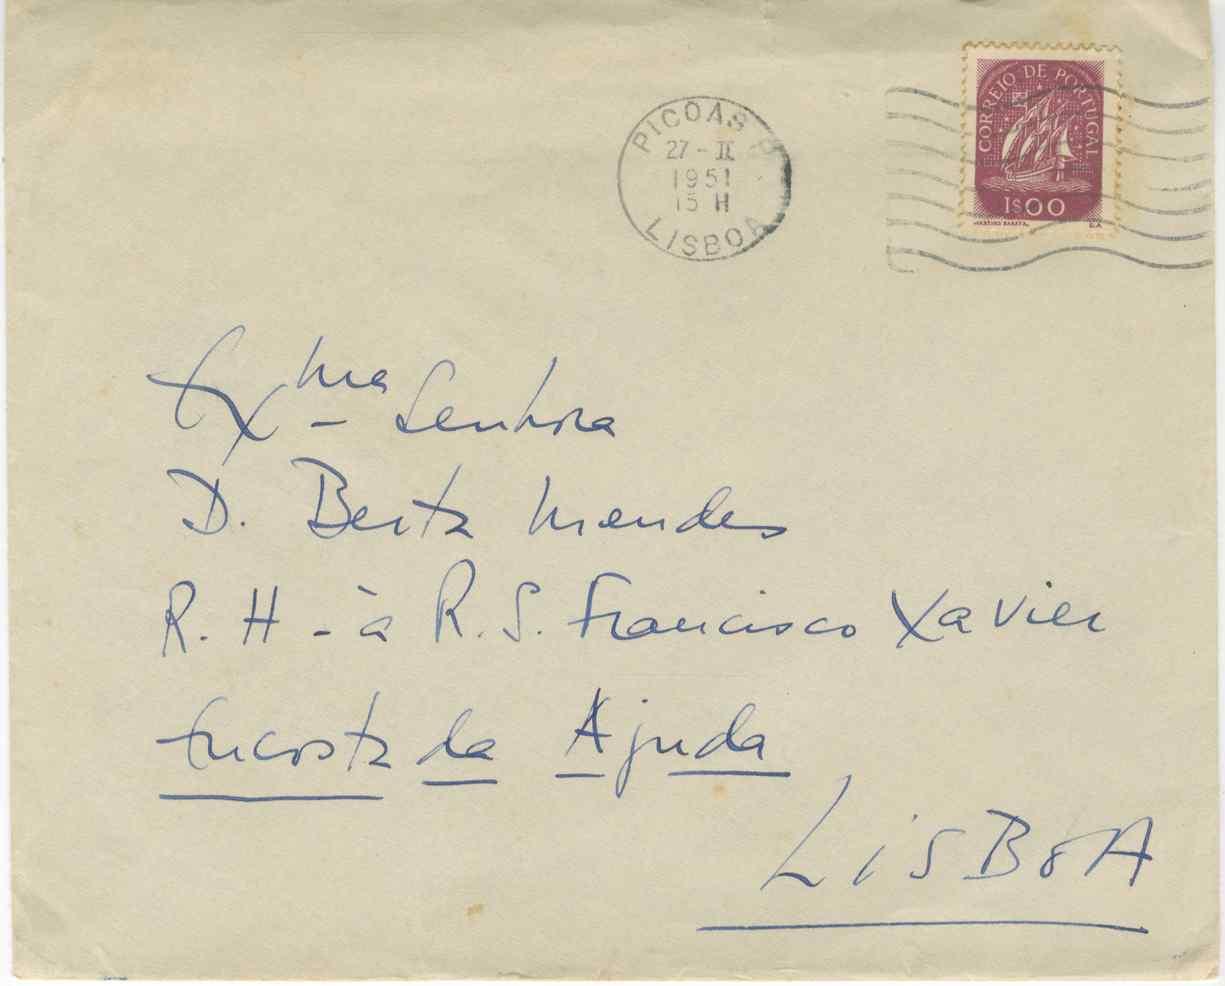 PICOAS
27-II
1951
15 H
LISBOA
CORREIO DE PORTUGAL
1$00
Exma Senhora
D. Berta Mendes
R. H - à R. S. Francisco Xavier
Encosta da Ajuda
LISBOA